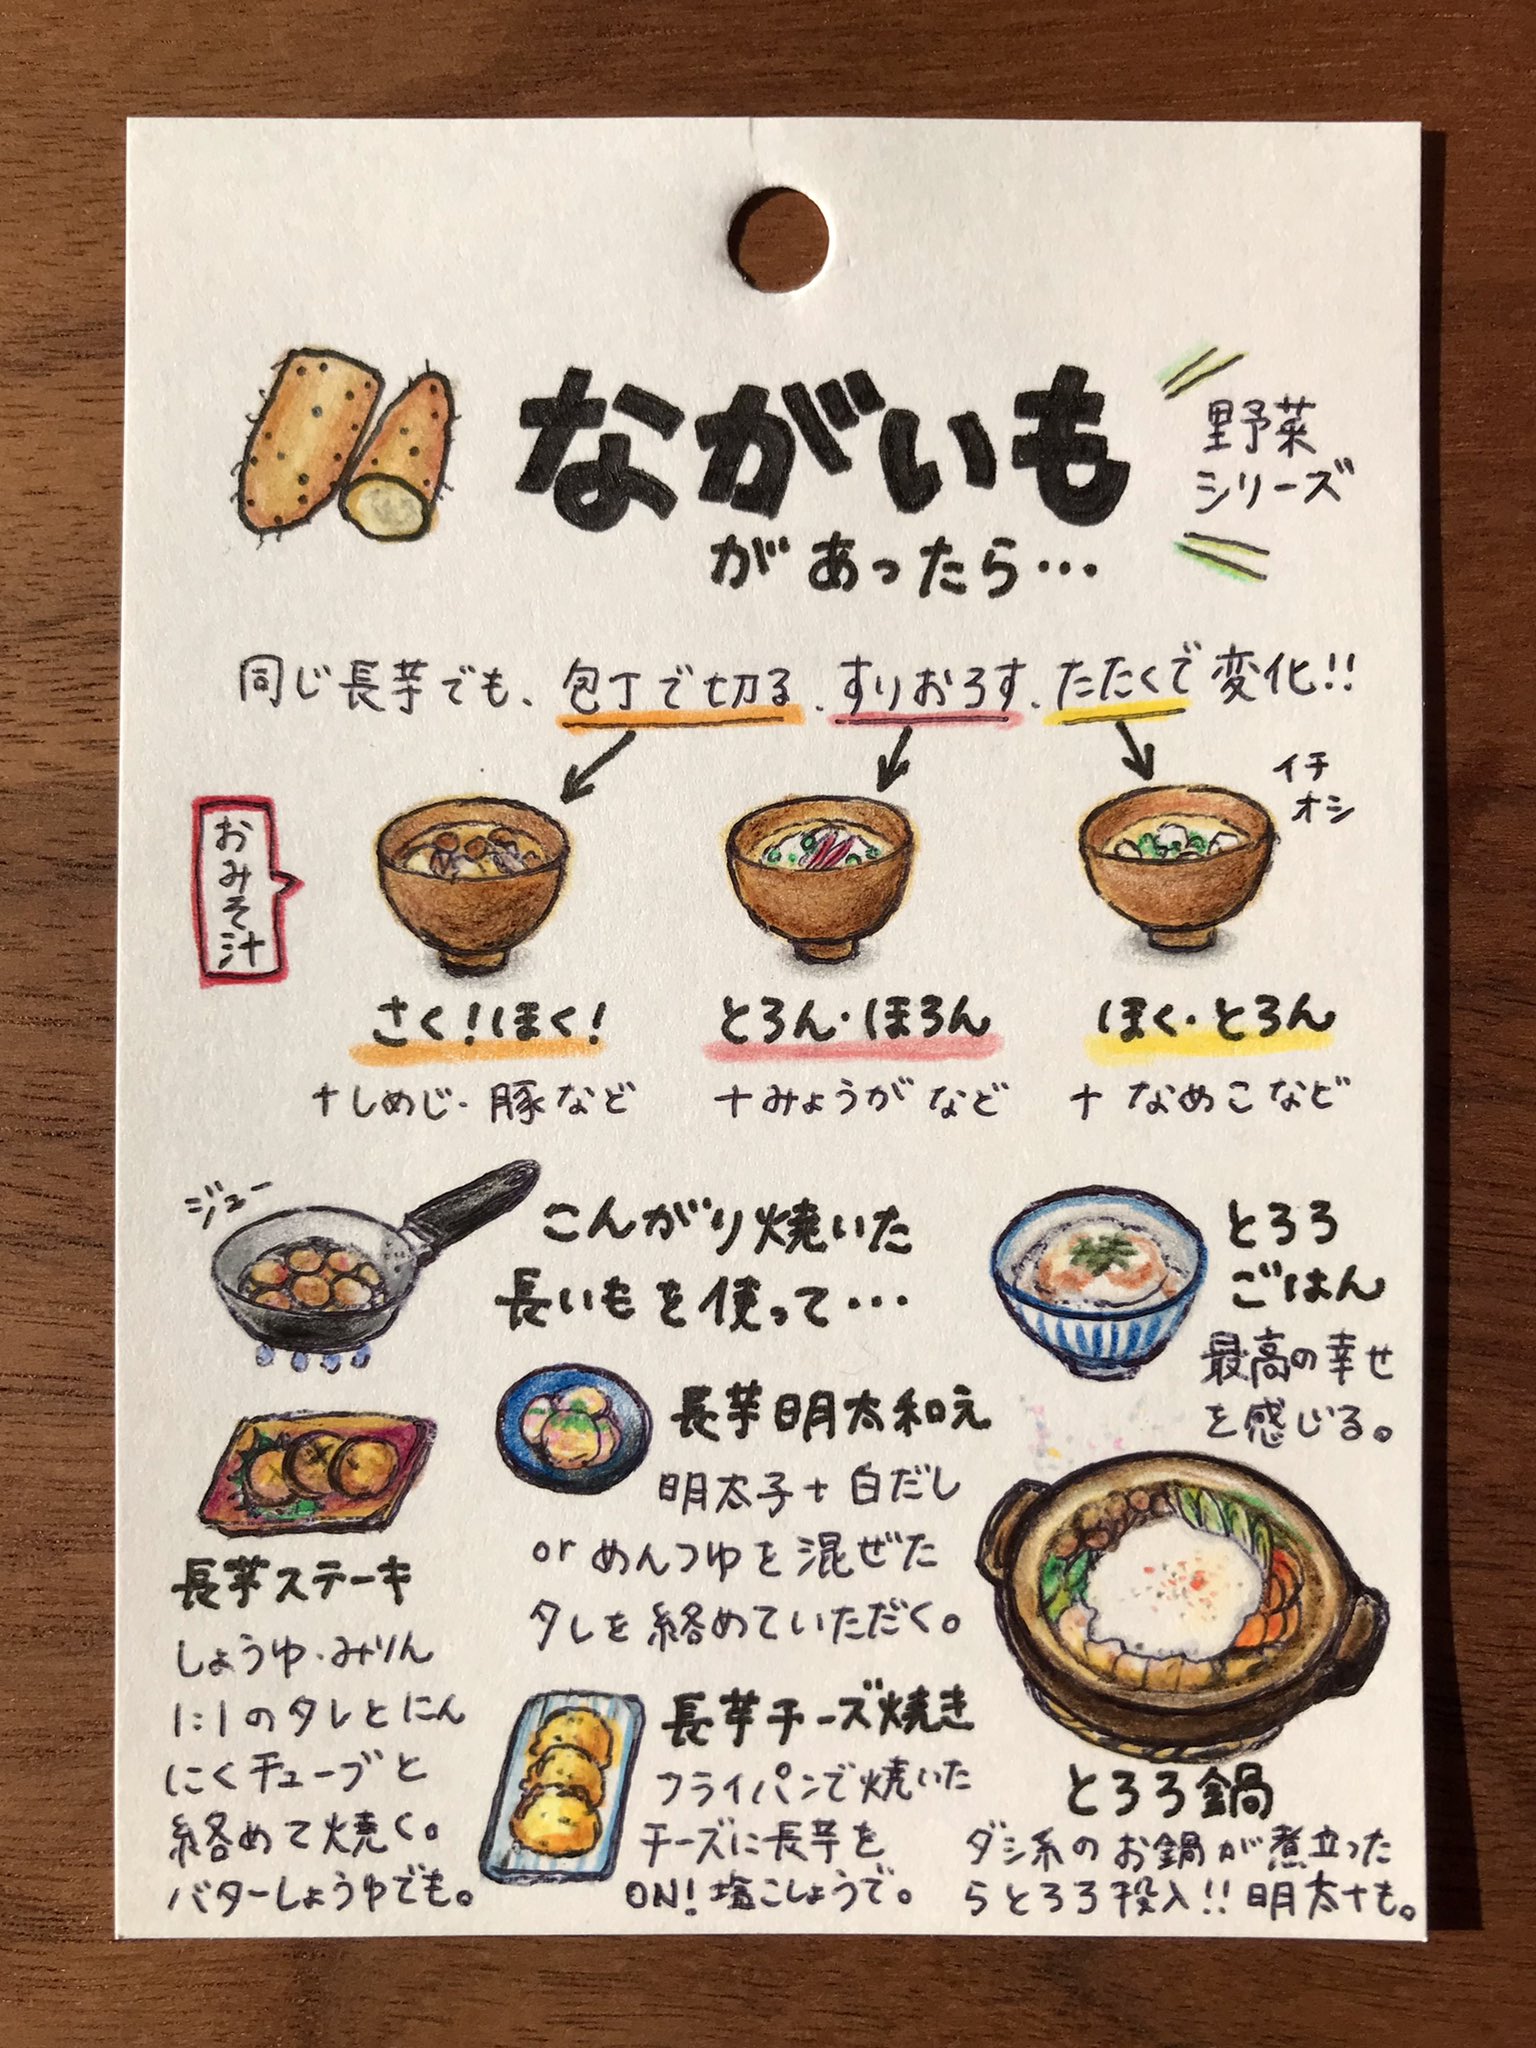 ながいも
があったら…
野菜
シリーズ
同じ長芋でも、包丁で切る、すりおろす、たたくで変化!!
おみそ汁
イチ
オシ
さく!ほく!
とろん・ほろん
ほく・とろん
+しめじ・豚など
+みょうがなど
+なめこなど
ジュー
こんがり焼いた
長いもを使って…
長芋ステーキ
しょうゆ・みりん
1:1のタレとにん
にくチューブと
絡めて焼く。
バターしょうゆでも。
長芋明太和え
明太子+白だし
orめんつゆを混ぜた
タレを絡めていただく。
長芋チーズ焼き
フライパンで焼いた
チーズに長芋を
ON!塩こしょうで。
とろろ
ごはん
最高の幸せ
を感じる。
とろろ鍋
ダシ系のお鍋が煮立った
らとろろ投入!!明太+も。